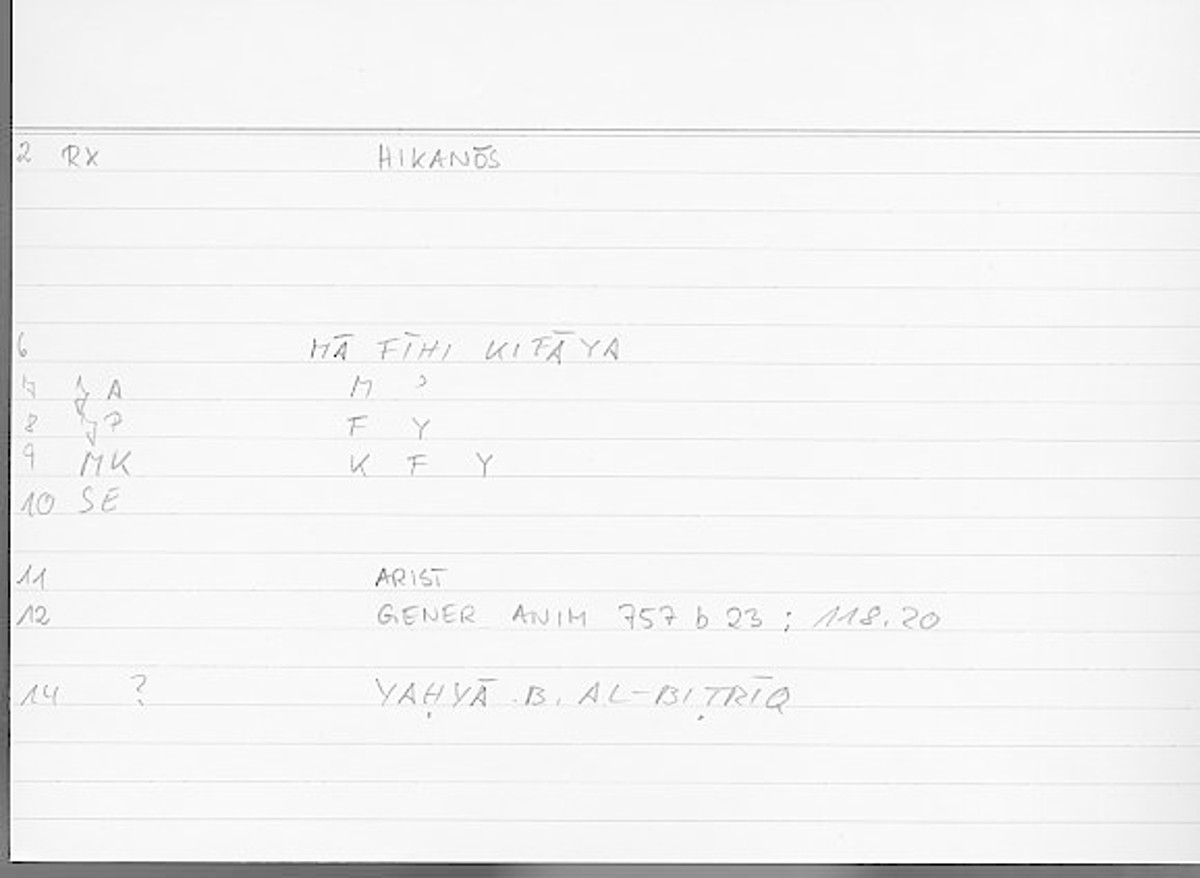 2 RX HIKANŌS
6 MĀ FĪHI KIFĀYA
7 A M ʾ
8 7 F Y
9 MK K F Y
10 SE
11 ARIST
12 GENER ANIM 757 b 23 ; 118.20
14 ? YAḤYĀ B. AL-BIṬRĪQ